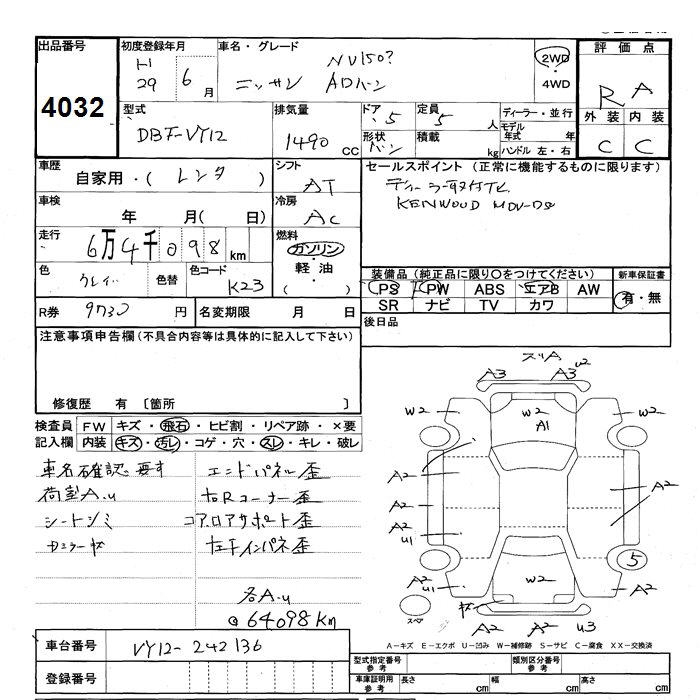 出品番号
4032
初度登録年月
H 29 6 月
車名・グレード
NV150?
ニッサン ADバン
2WD
・
4WD
評価点
R A
外装 内装
C C
型式
DBF-VY12
排気量
1490 CC
ドア・5
形状 バン
定員 5 人
積載 kg
ディーラー・並行
モデル年式 年
ハンドル 左・右
車歴
自家用・( レンタ )
シフト
AT
車検
年 月( 日)
冷房
AC
走行
6万4千098 km
燃料
ガソリン・
軽油・
( )
色
グレイ
色替
色コード
K23
セールスポイント (正常に機能するものに限ります)
ディーラー取付TV
KENWOOD MDV-D
装備品 (純正品に限り○をつけてください)
PS PW ABS エアB AW
SR ナビ TV カワ
新車保証書
有・無
R券 9730 円
名変期限 月 日
後日品
注意事項申告欄(不具合内容等は具体的に記入して下さい)
修復歴 有 〔箇所 〕
検査員 FW キズ・飛石・ヒビ割・リペア跡・×要
記入欄 内装 キズ・汚レ・コゲ・穴・スレ・キレ・破レ
車名確認要す
荷室A.u
シートシミ
エンドパネル歪
右Rコーナー歪
コア.ロアサポート歪
左Fインパネ歪
各A.u
@64098Km
スリA
A3 A3 U2
W2 W2 W2
A1
A2 A2
A2
A2
U1
5
A2 W2 A2
U1
スペア
A2 A2 U3
A-キズ E-エクボ U-凹み W-補修跡 S-サビ C-腐食 XX-交換済
車台番号 VY12-242136
登録番号
型式指定番号 参考
類別区分番号 参考
車庫証明用 参考
長さ cm
幅 cm
高さ cm